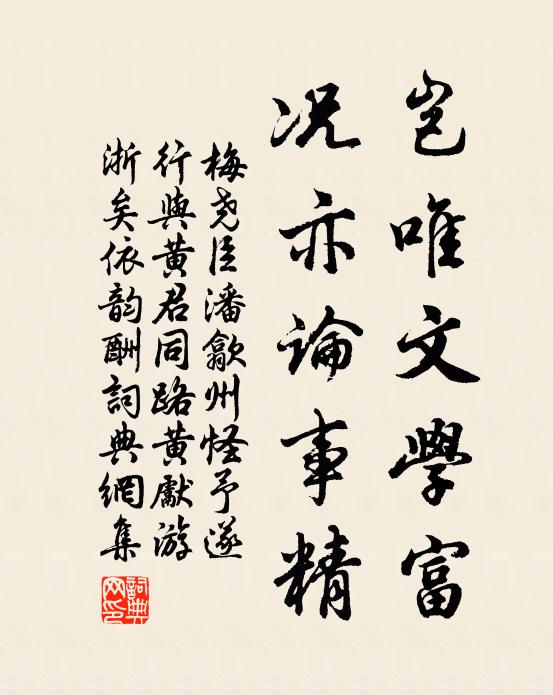 豈唯文學富
況亦論事精
梅堯臣潘歙州怪予遂
行與黃君同路黃獻游
浙矣依韵酬詞典網集
詞典網印